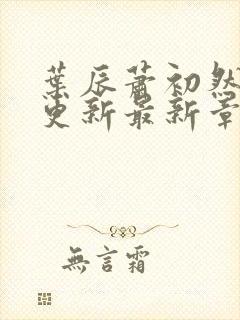 葉辰蕭初然
更新最新章
無言霜